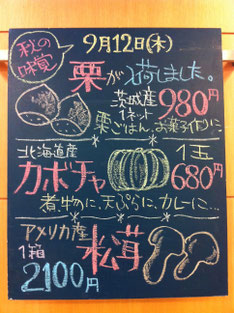 秋の
味覚
9月12日(木)
栗が入荷しました。
茨城産
1ネット
980円
栗ごはん、お菓子作りに
北海道産
1玉
カボチャ
680円
煮物に、天ぷらに、カレーに…
アメリカ産
1箱
松茸
2100円